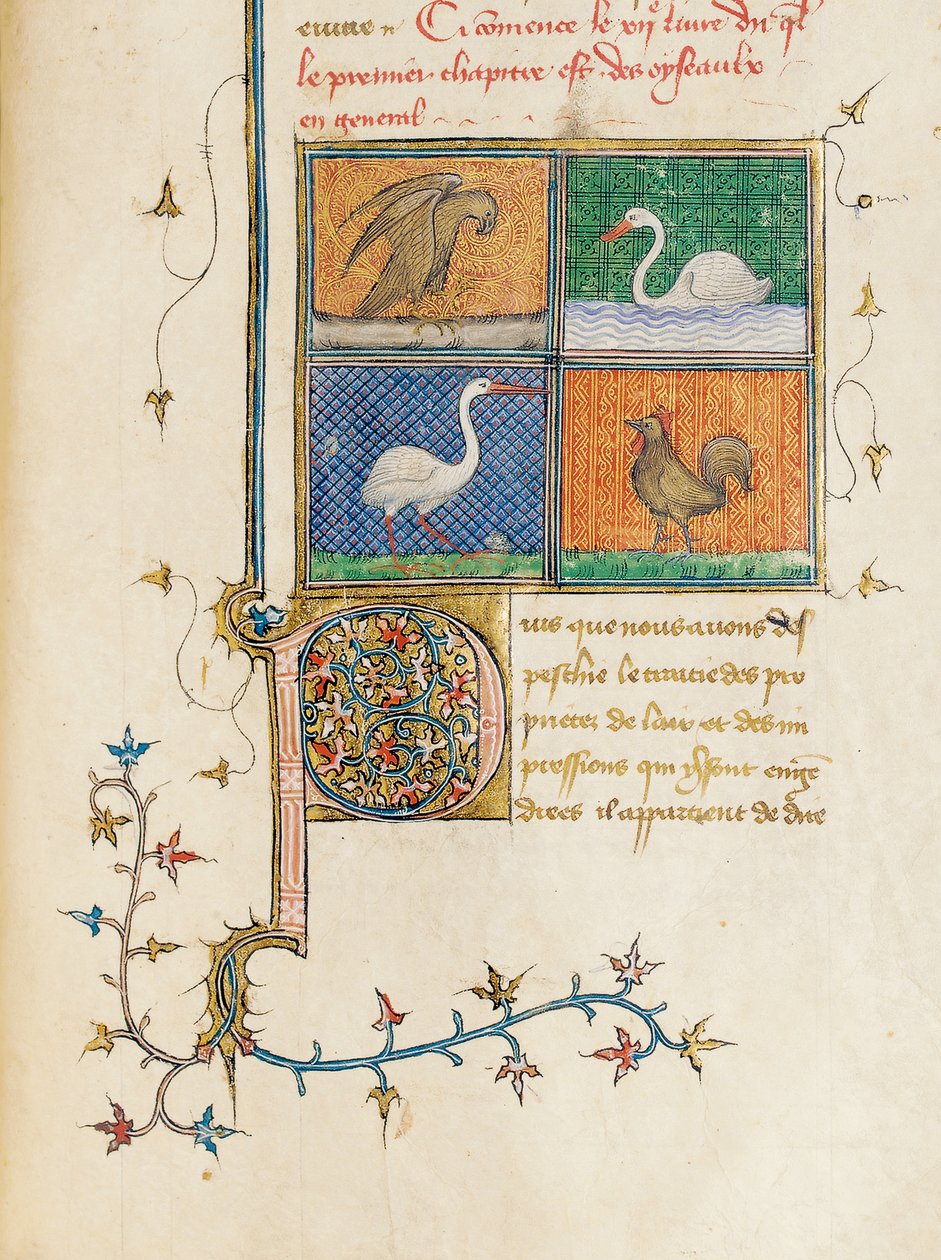 Ci cõmence le xiie livre du ql
le premier chapitre est des oyseaulx
en general
Puis que nous auons des
peschie le traitie des pro
prietez de lair et des im
pressions qui y sont engē
drees il appartient de dire